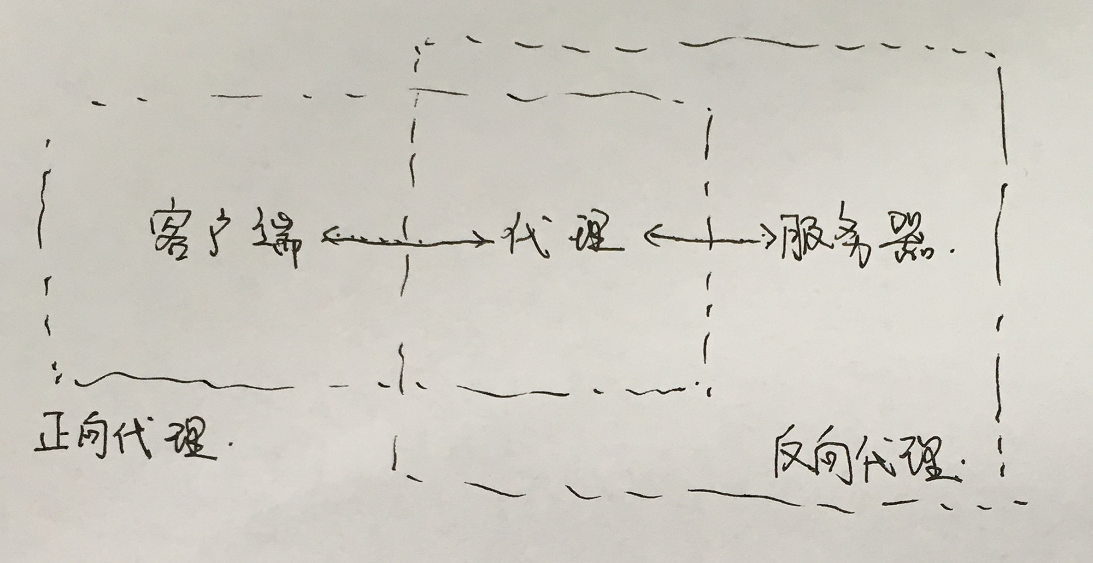 客户端 代理 服务器.
正向代理.
反向代理.